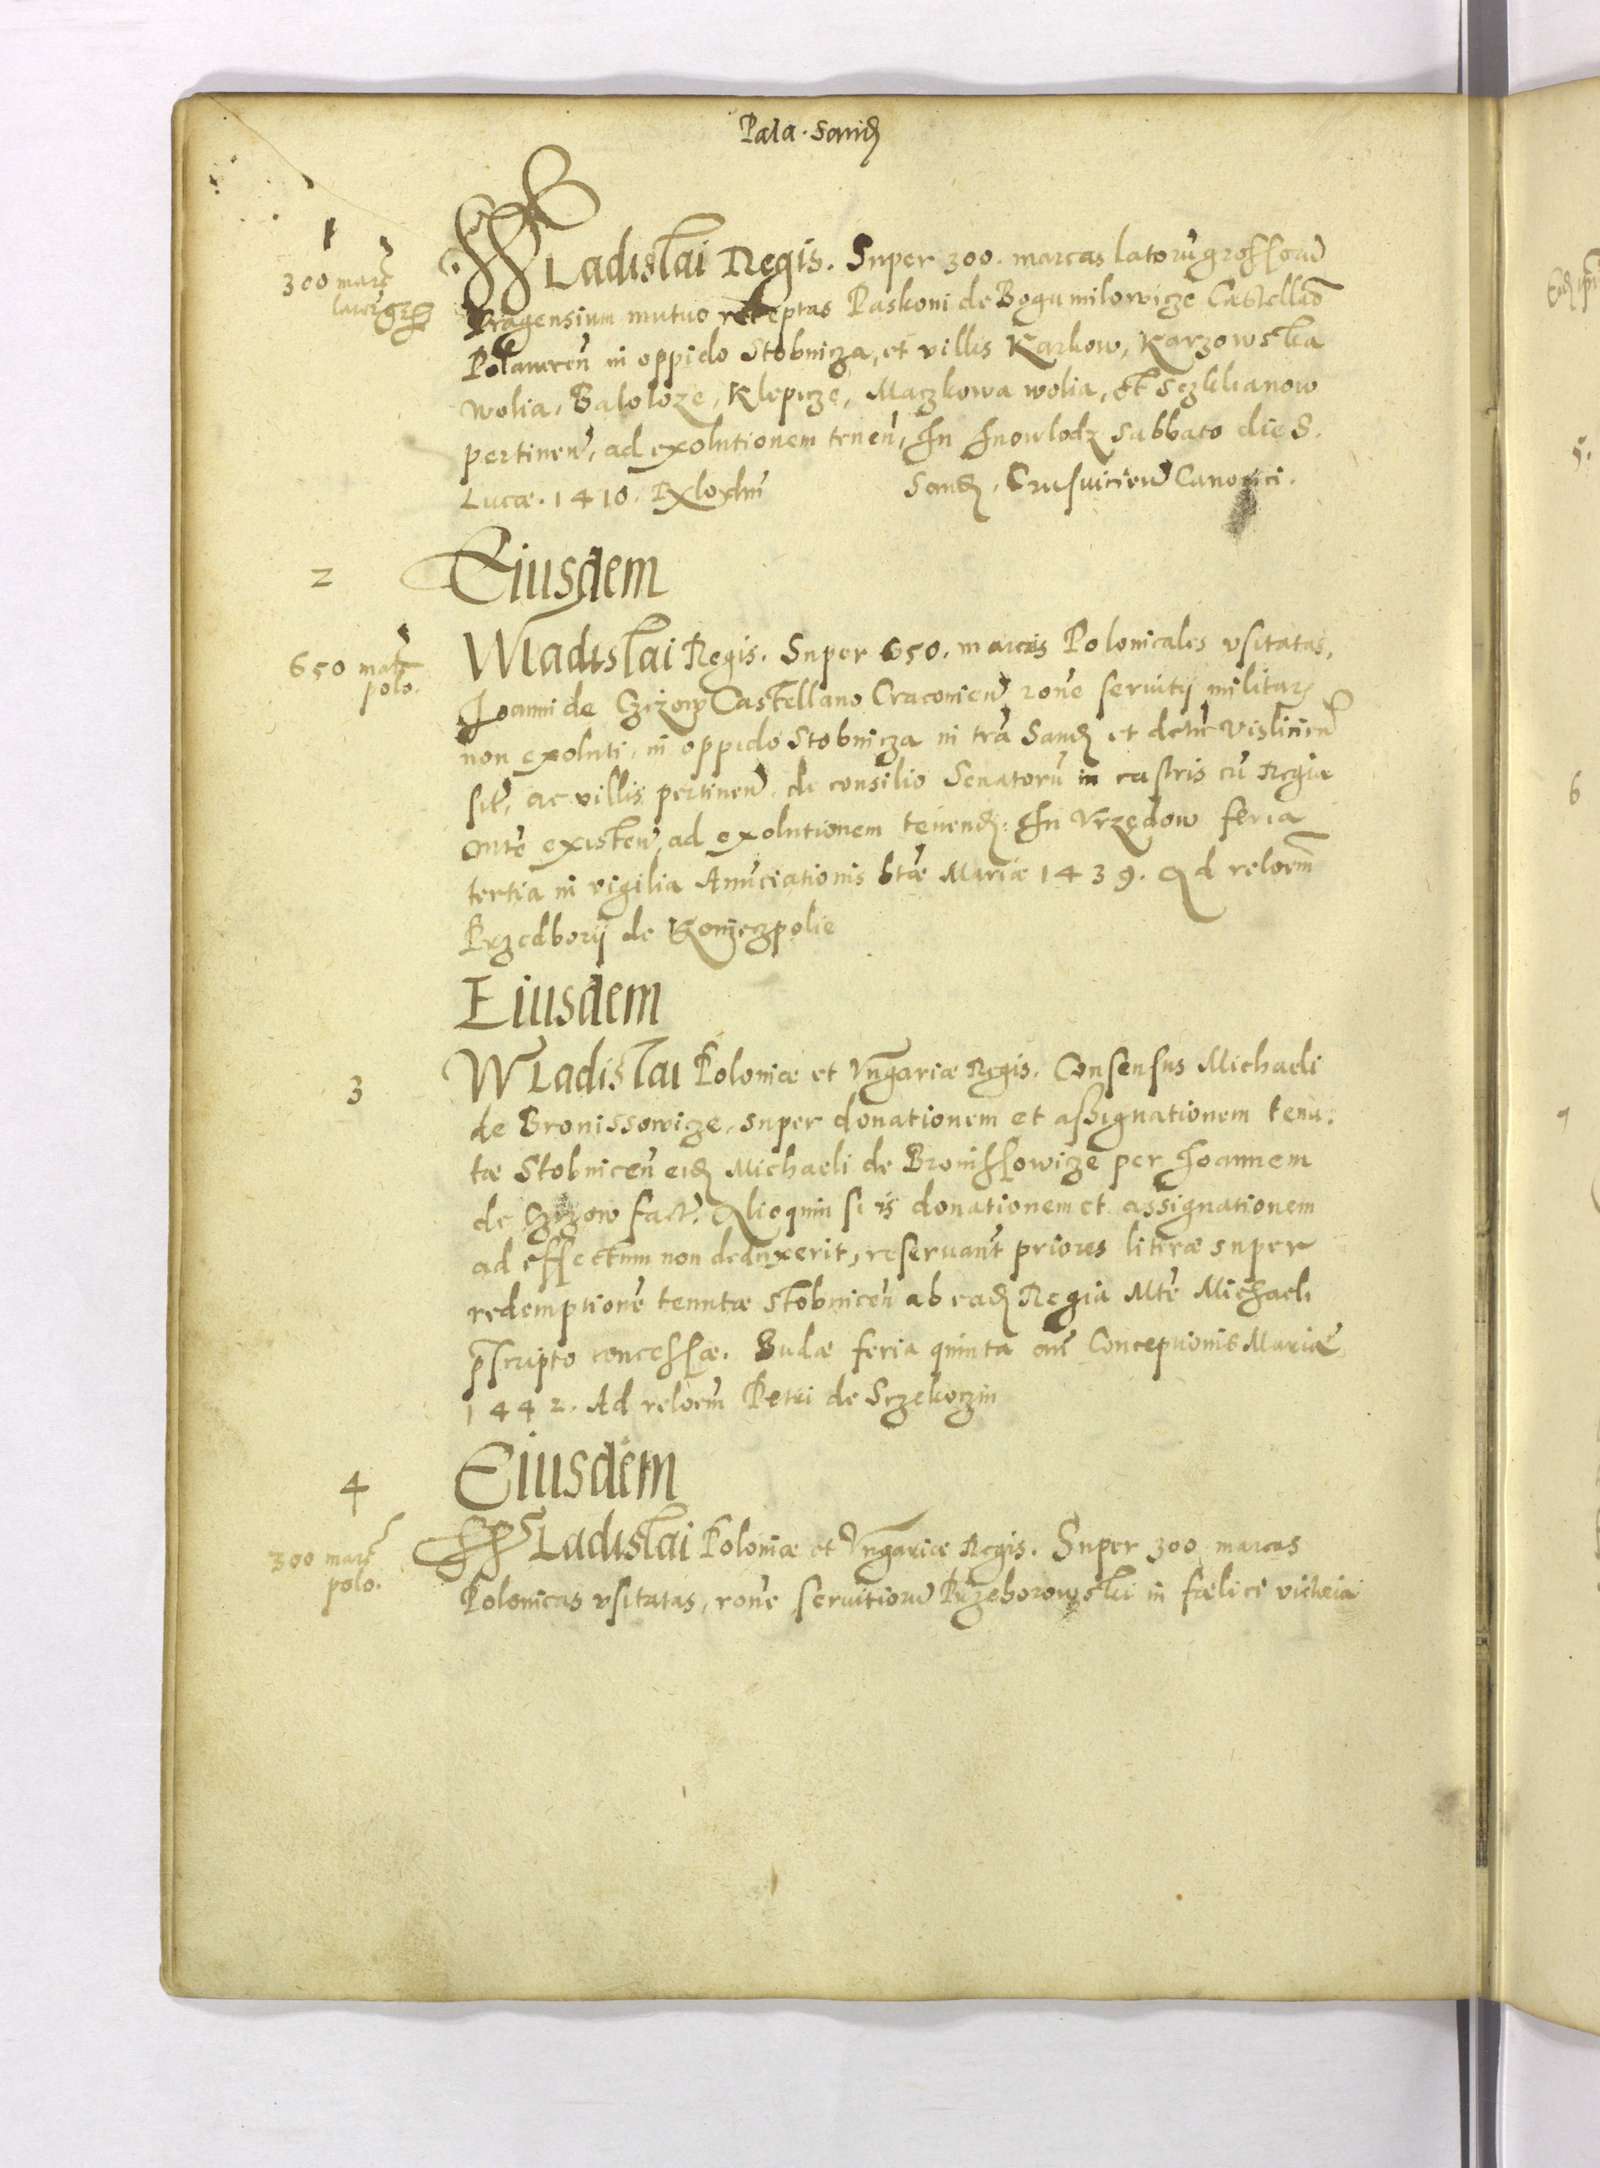 Pala. Sanđ
1
300 marc
lator gross
WLadislai Regis. Super 300. marcas latorū grossorū
Pragensium mutuo receptas Paskoni de Bogumilowicze Castellāo
in oppido Stobnicza, et villis Karkow, Karzowska
wolia, Baloloze, Klepicze, Maczkowa wolia, et Sczklianow
pertinen̄, ad exolutionem tenen̄, In Inowlodz Sabbato die S.
Lucæ. 1410. Sanđ, Crusuicien̄ Canonici.
2
Eiusdem
650 marc
polo.
Wladislai Regis. Super 650. marcas Polonicales vsitatas,
Joanni de Czizow Castellano Cracouien̄, rōne seruitij militar
non exoluti, in oppido Stobnicza in trā Sanđ et dctū Vislicien̄
sit̄, ac villis pertinen̄, de consilio Senatorū in castris cū Regia
Mte existen̄, ad exolutionem tenenđ. In Vrzędow feria
tertia in vigilia Anūciationis btæ Mariæ 1439. Ad reloēm
Przedborij de Konieczpolie
Eiusdem
3
WLadislai Poloniæ et Vngariæ Regis. Consensus Michaeli
de Bronissowicze, super donationem et assignationem tenu:
tæ Stobnicen̄ eiđ Michaeli de Bronissowicze per Joannem
de Czizow fact. Alioquin si is donationem et assignationem
ad effectum non deduxerit, reseruant priores literæ super
redemptionē tenutæ Stobnicen̄ ab eađ Regia Mtē Michaeli
pscripto concessæ. Budæ feria quinta an̄ Conceptionis Mariæ
1442. Ad reloēm Petri de Sczekoczin
Eiusdem
4
300 marc
polo.
WLadislai Poloniæ et Vngariæ Regis. Super 300 marcas
Polonicas vsitatas, rōne seruitiorū Przehorowski in fœlici victoria
5.
6